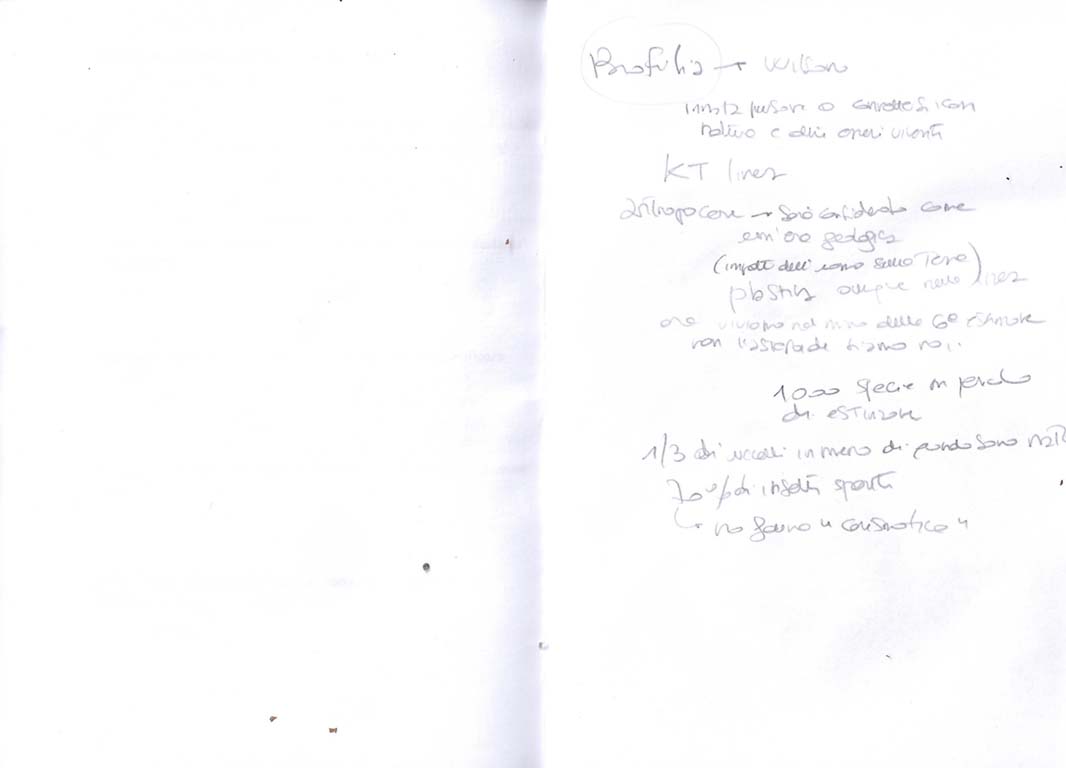 Biofilia → Wilson
innata passione o connettersi con
nativo e altri esseri viventi
KT linea
antropocene → sarà considerato come
era geologica
(impatto dell'uomo sulla Terra)
plastica ovunque nella linea
ora viviamo nel mezzo della 6ª estinzione
non l'asteroide siamo noi..
1000 specie in pericolo
di estinzione
1/3 di uccelli in meno di quando sono nato
70% di insetti spariti
↳ no fauna "carismatica"